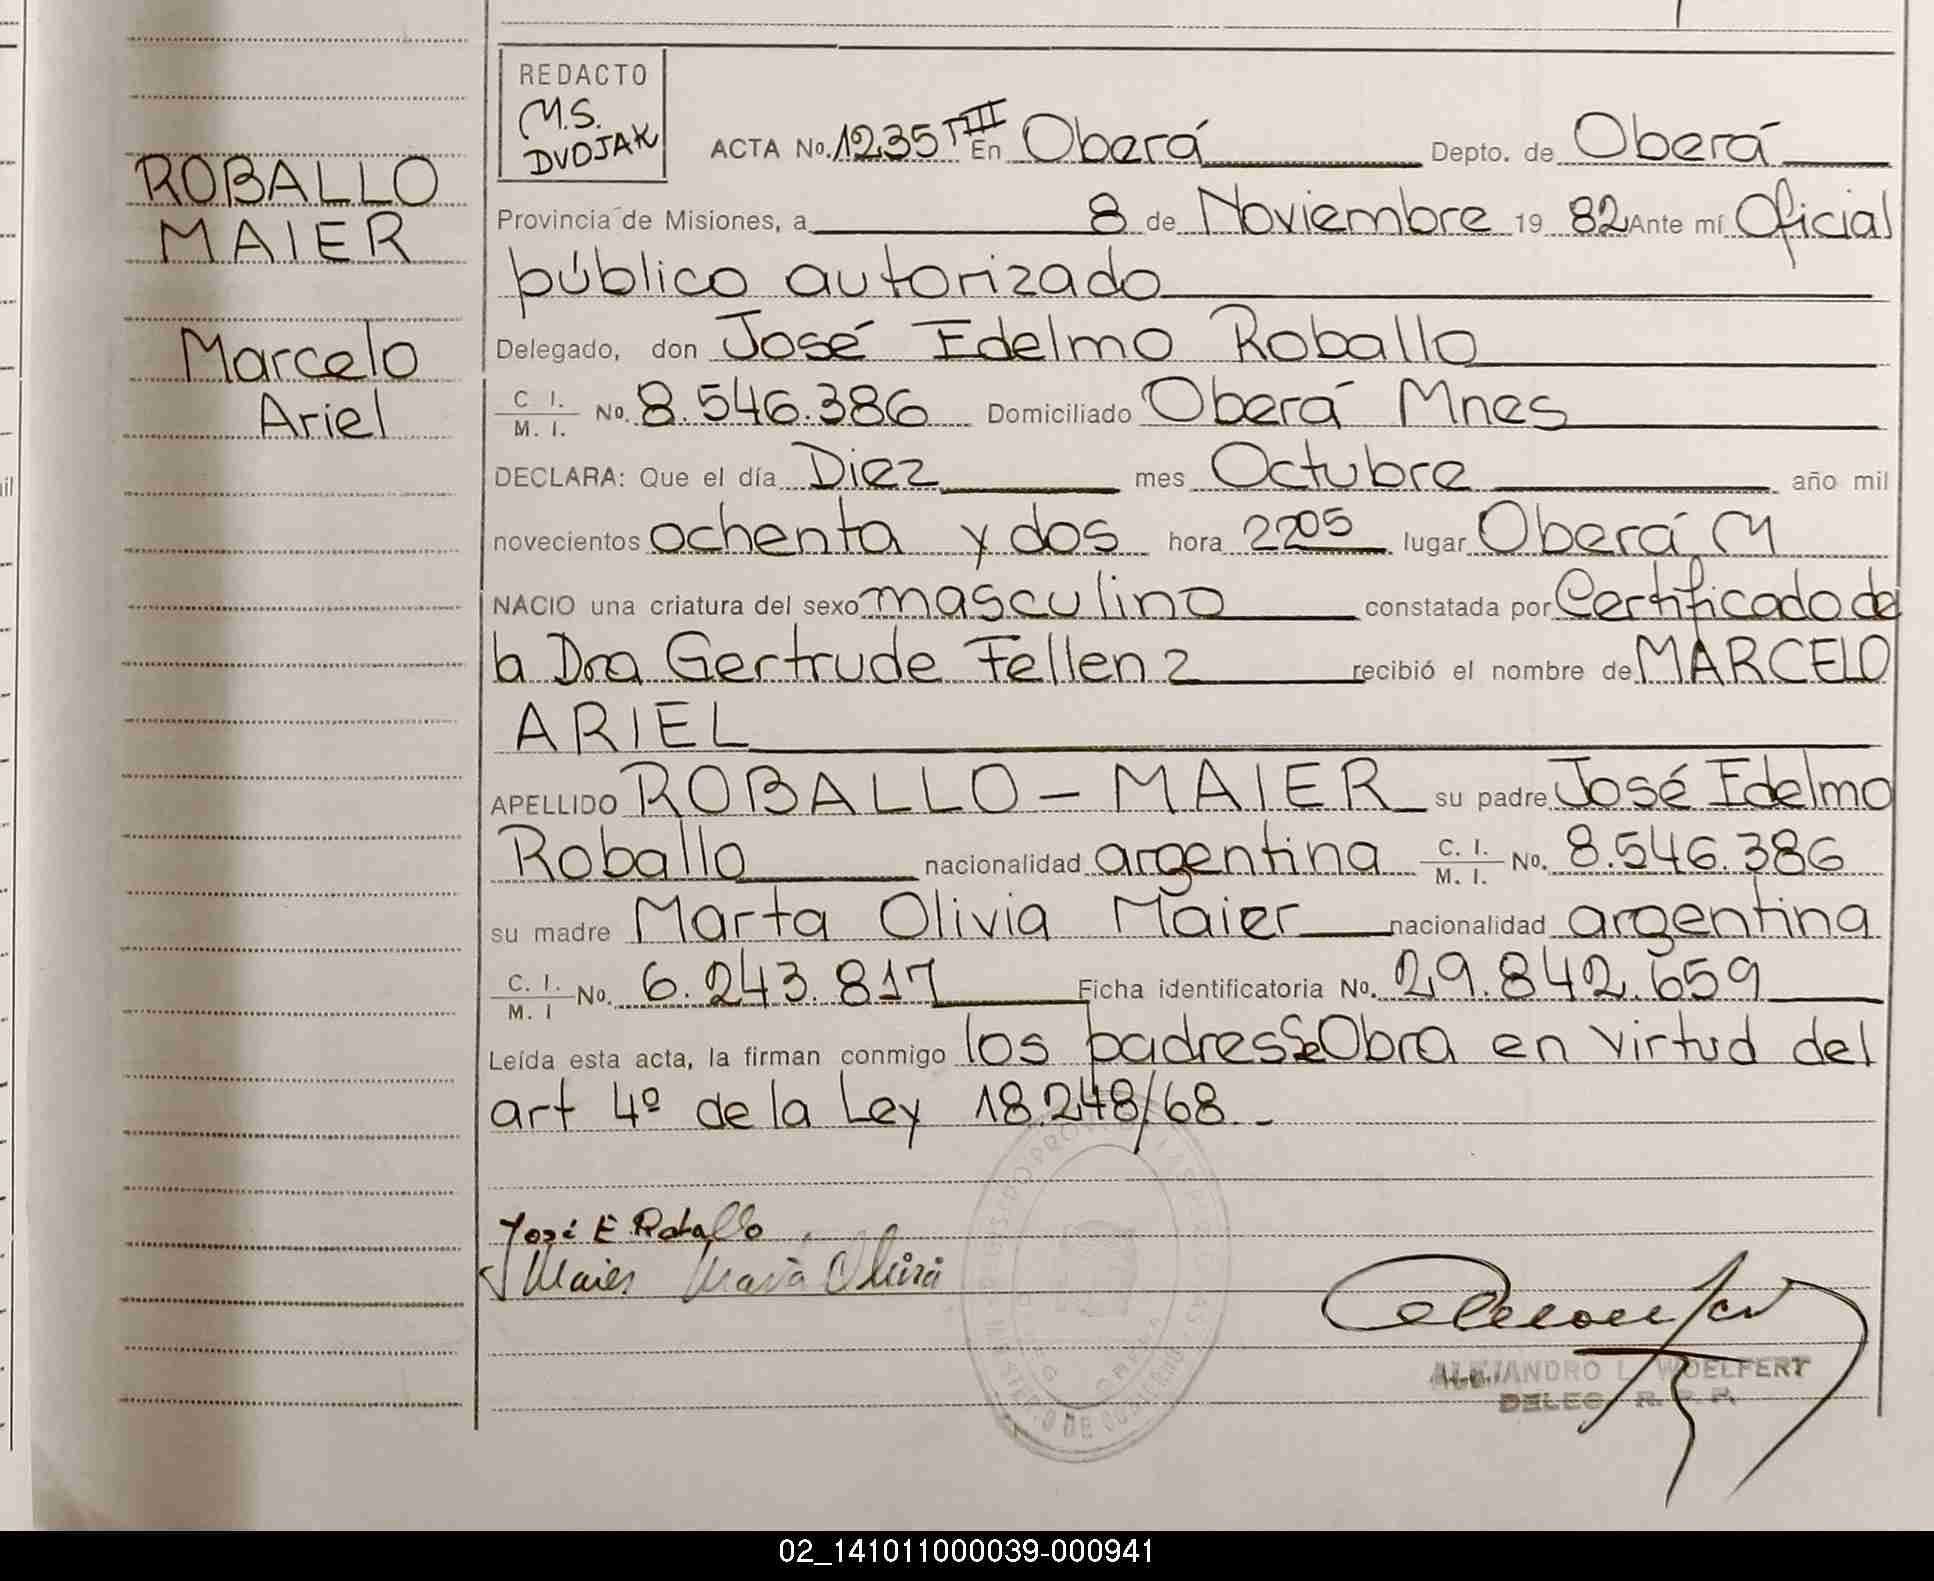 REDACTO
M.S.
DVOJAK
ACTA No. 1235 TIII En Oberá Depto. de Oberá
ROBALLO
MAIER
Marcelo
Ariel
Provincia de Misiones, a 8 de Noviembre 19 82 Ante mí Oficial
público autorizado
Delegado, don José Edelmo Roballo
C. I. / M. I. No. 8.546.386 Domiciliado Oberá Mnes
DECLARA: Que el día Diez mes Octubre año mil
novecientos ochenta y dos hora 2205 lugar Oberá M
NACIO una criatura del sexo masculino constatada por Certificado de
la Dra Gertrude Fellenz recibió el nombre de MARCELO
ARIEL
APELLIDO ROBALLO - MAIER su padre José Edelmo
Roballo nacionalidad argentina C. I. / M. I. No. 8.546.386
su madre Marta Olivia Maier nacionalidad argentina
C. I. / M. I No. 6.243.817 Ficha identificatoria No. 29.842.659
Leída esta acta, la firman conmigo los padres Se Obra en virtud del
art 4º de la Ley 18.248/68.-
José E Roballo
Maier Olivia
ALEJANDRO L. WOELFERT
DELEG. R. P. P.
02_141011000039-000941